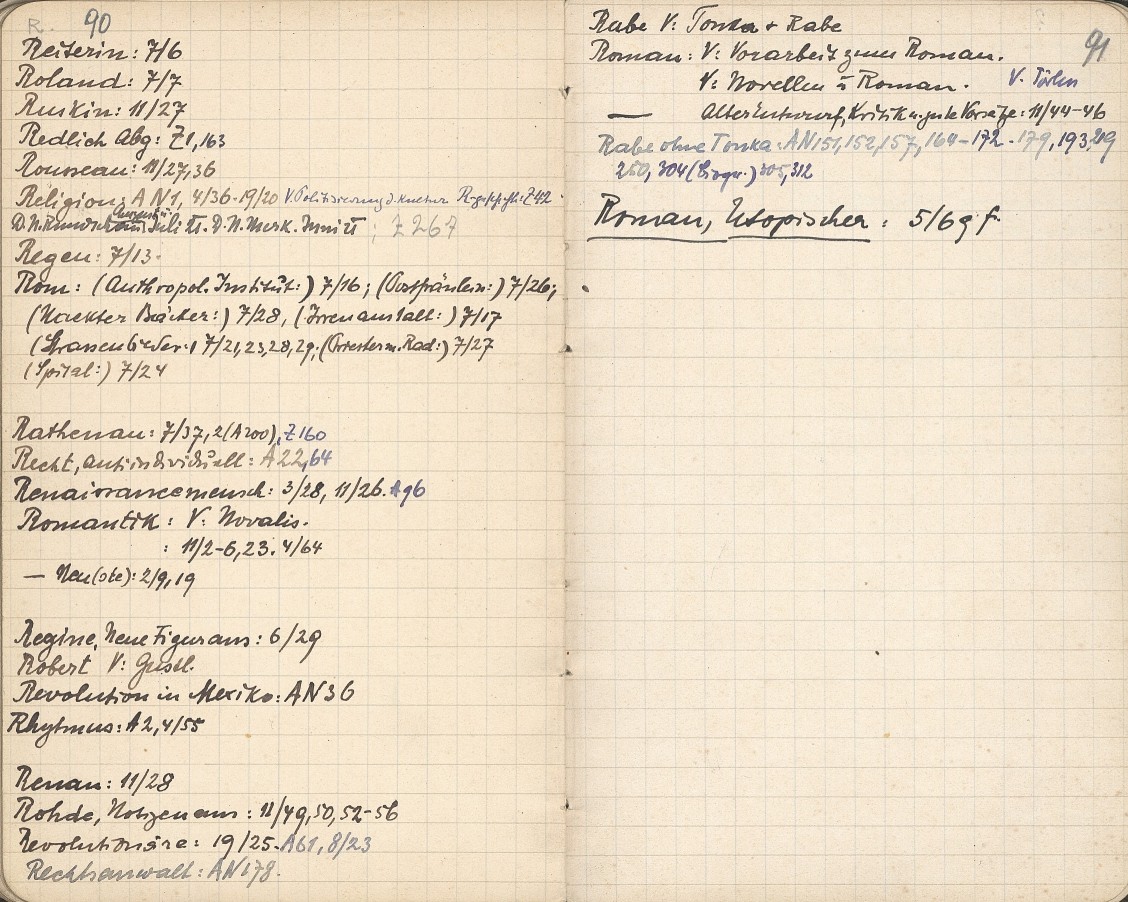 R. 90
Reiterin: 7/6
Roland: 7/7
Ruskin: 11/27
Redlich Abg: Z1,163
Rousseau: 11/27,36
Religion: AN1, 4/36-19/20 V. Politisierung d. Kultur Z42
D. N. Rundsch. Juli u. D. N. Merk. ; Z 267
Regen: 7/13.
Rom: (Anthropol. Institut:) 7/16; (Postfräulein:) 7/26;
(Nackter Bäcker:) 7/28, (Irrenanstalt:) 7/17
(Strassenlieder:) 7/21,23,28,29; (Priester m. Rad:) 7/27
(Spital:) 7/24
Rathenau: 7/37, 2(A200), Z160
Recht, antiindividuell: A22,64
Renaissancemensch: 3/28, 11/26. A96
Romantik: V. Novalis.
: 11/2-6,23. 4/64
— Neu(ste): 2/9,19
Regine, Neue Figur aus: 6/29
Robert V: Gustl.
Revolution in Mexiko: AN36
Rhytmus: A2,4/55
Renan: 11/28
Rohde, Notizen aus: 11/49,50,52-56
Revolutionäre: 19/25. A61, 8/23
Rechtsanwalt: AN178.
91
Rabe V: Tonka + Rabe
Roman: V: Vorarbeit zum Roman.
V: Novellen u Roman. V. Törless
— Alter Entwurf, Kritik u. gute Vorsätze: 11/44-46
Rabe ohne Tonka: AN151,152,157, 164-172-179, 193,219
250, 304 (Biogr.) 305,312
Roman, Utopischer: 5/69 f.